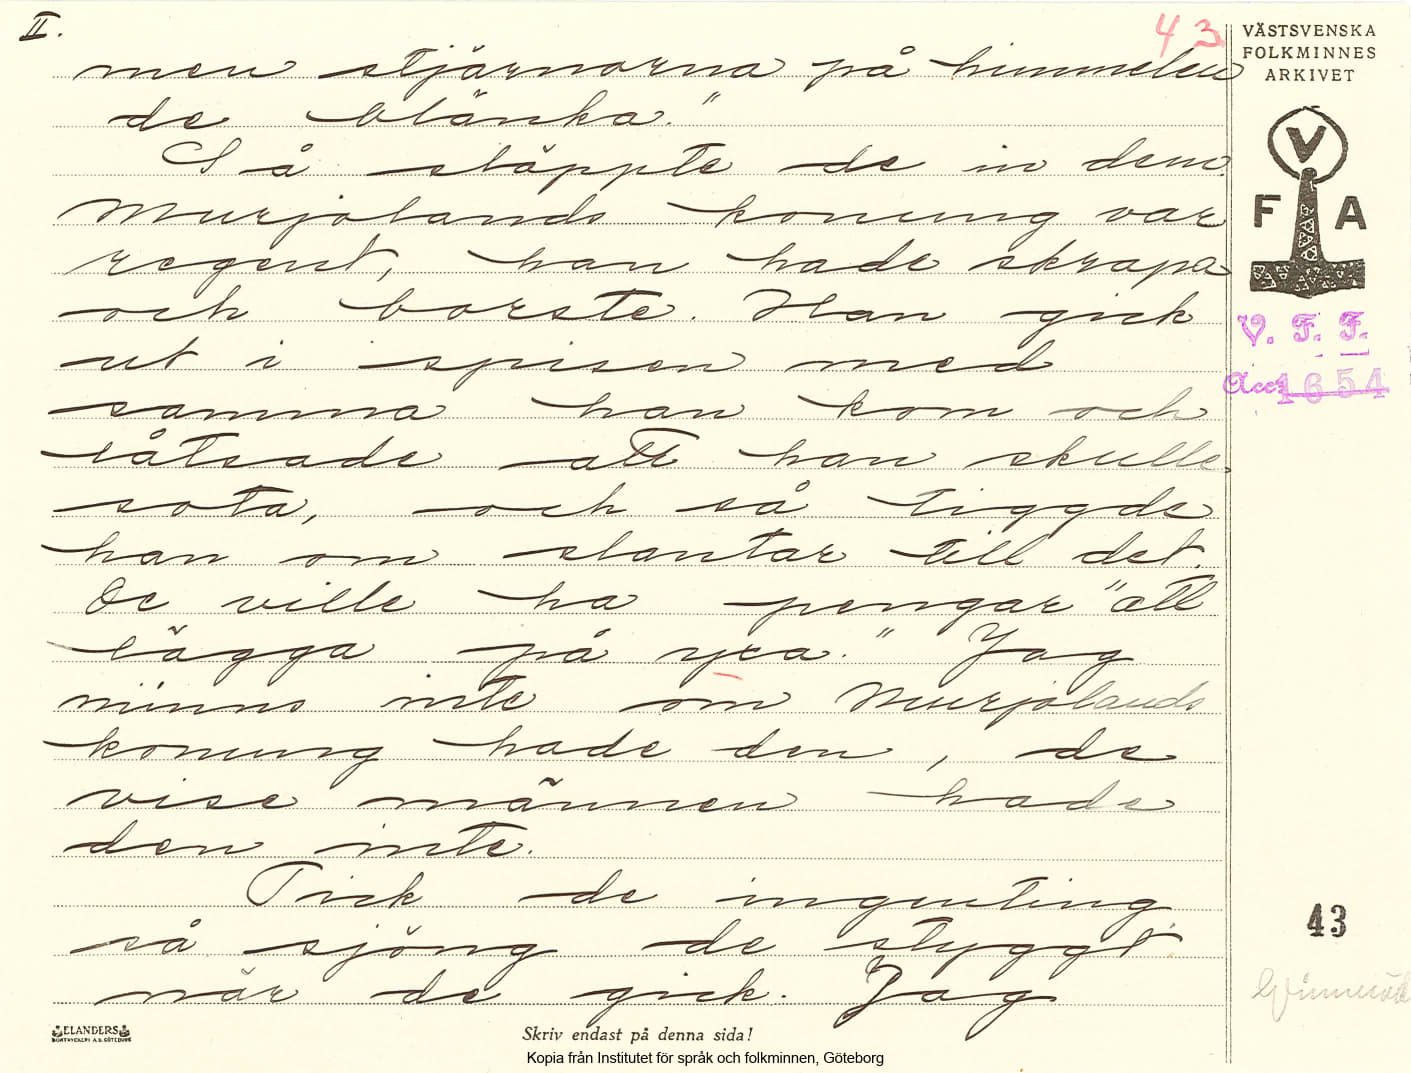 II.
43
men stjärnorna på himmelen
de blänka."
Så släppte de in dem.
Murjolands konung var
regent, han hade skrapa
och borste. Han gick
ut i spisen med
samma han kom och
låtsade att han skulle
sota, och så tiggde
han om slantar till det.
De ville ha pengar "att
lägga på yxa." Jag
minns inte om Murjolands
konung hade den, de
vise männen hade
den inte.
Fick de ingenting
så sjöng de styggt
när de gick. Jag
VÄSTSVENSKA
FOLKMINNES
ARKIVET
V
F A
V. F. F.
Acc. 1654
43
ELANDERS
BOKTRYCKERI A.B. GÖTEBORG
Skriv endast på denna sida!
Kopia från Institutet för språk och folkminnen, Göteborg